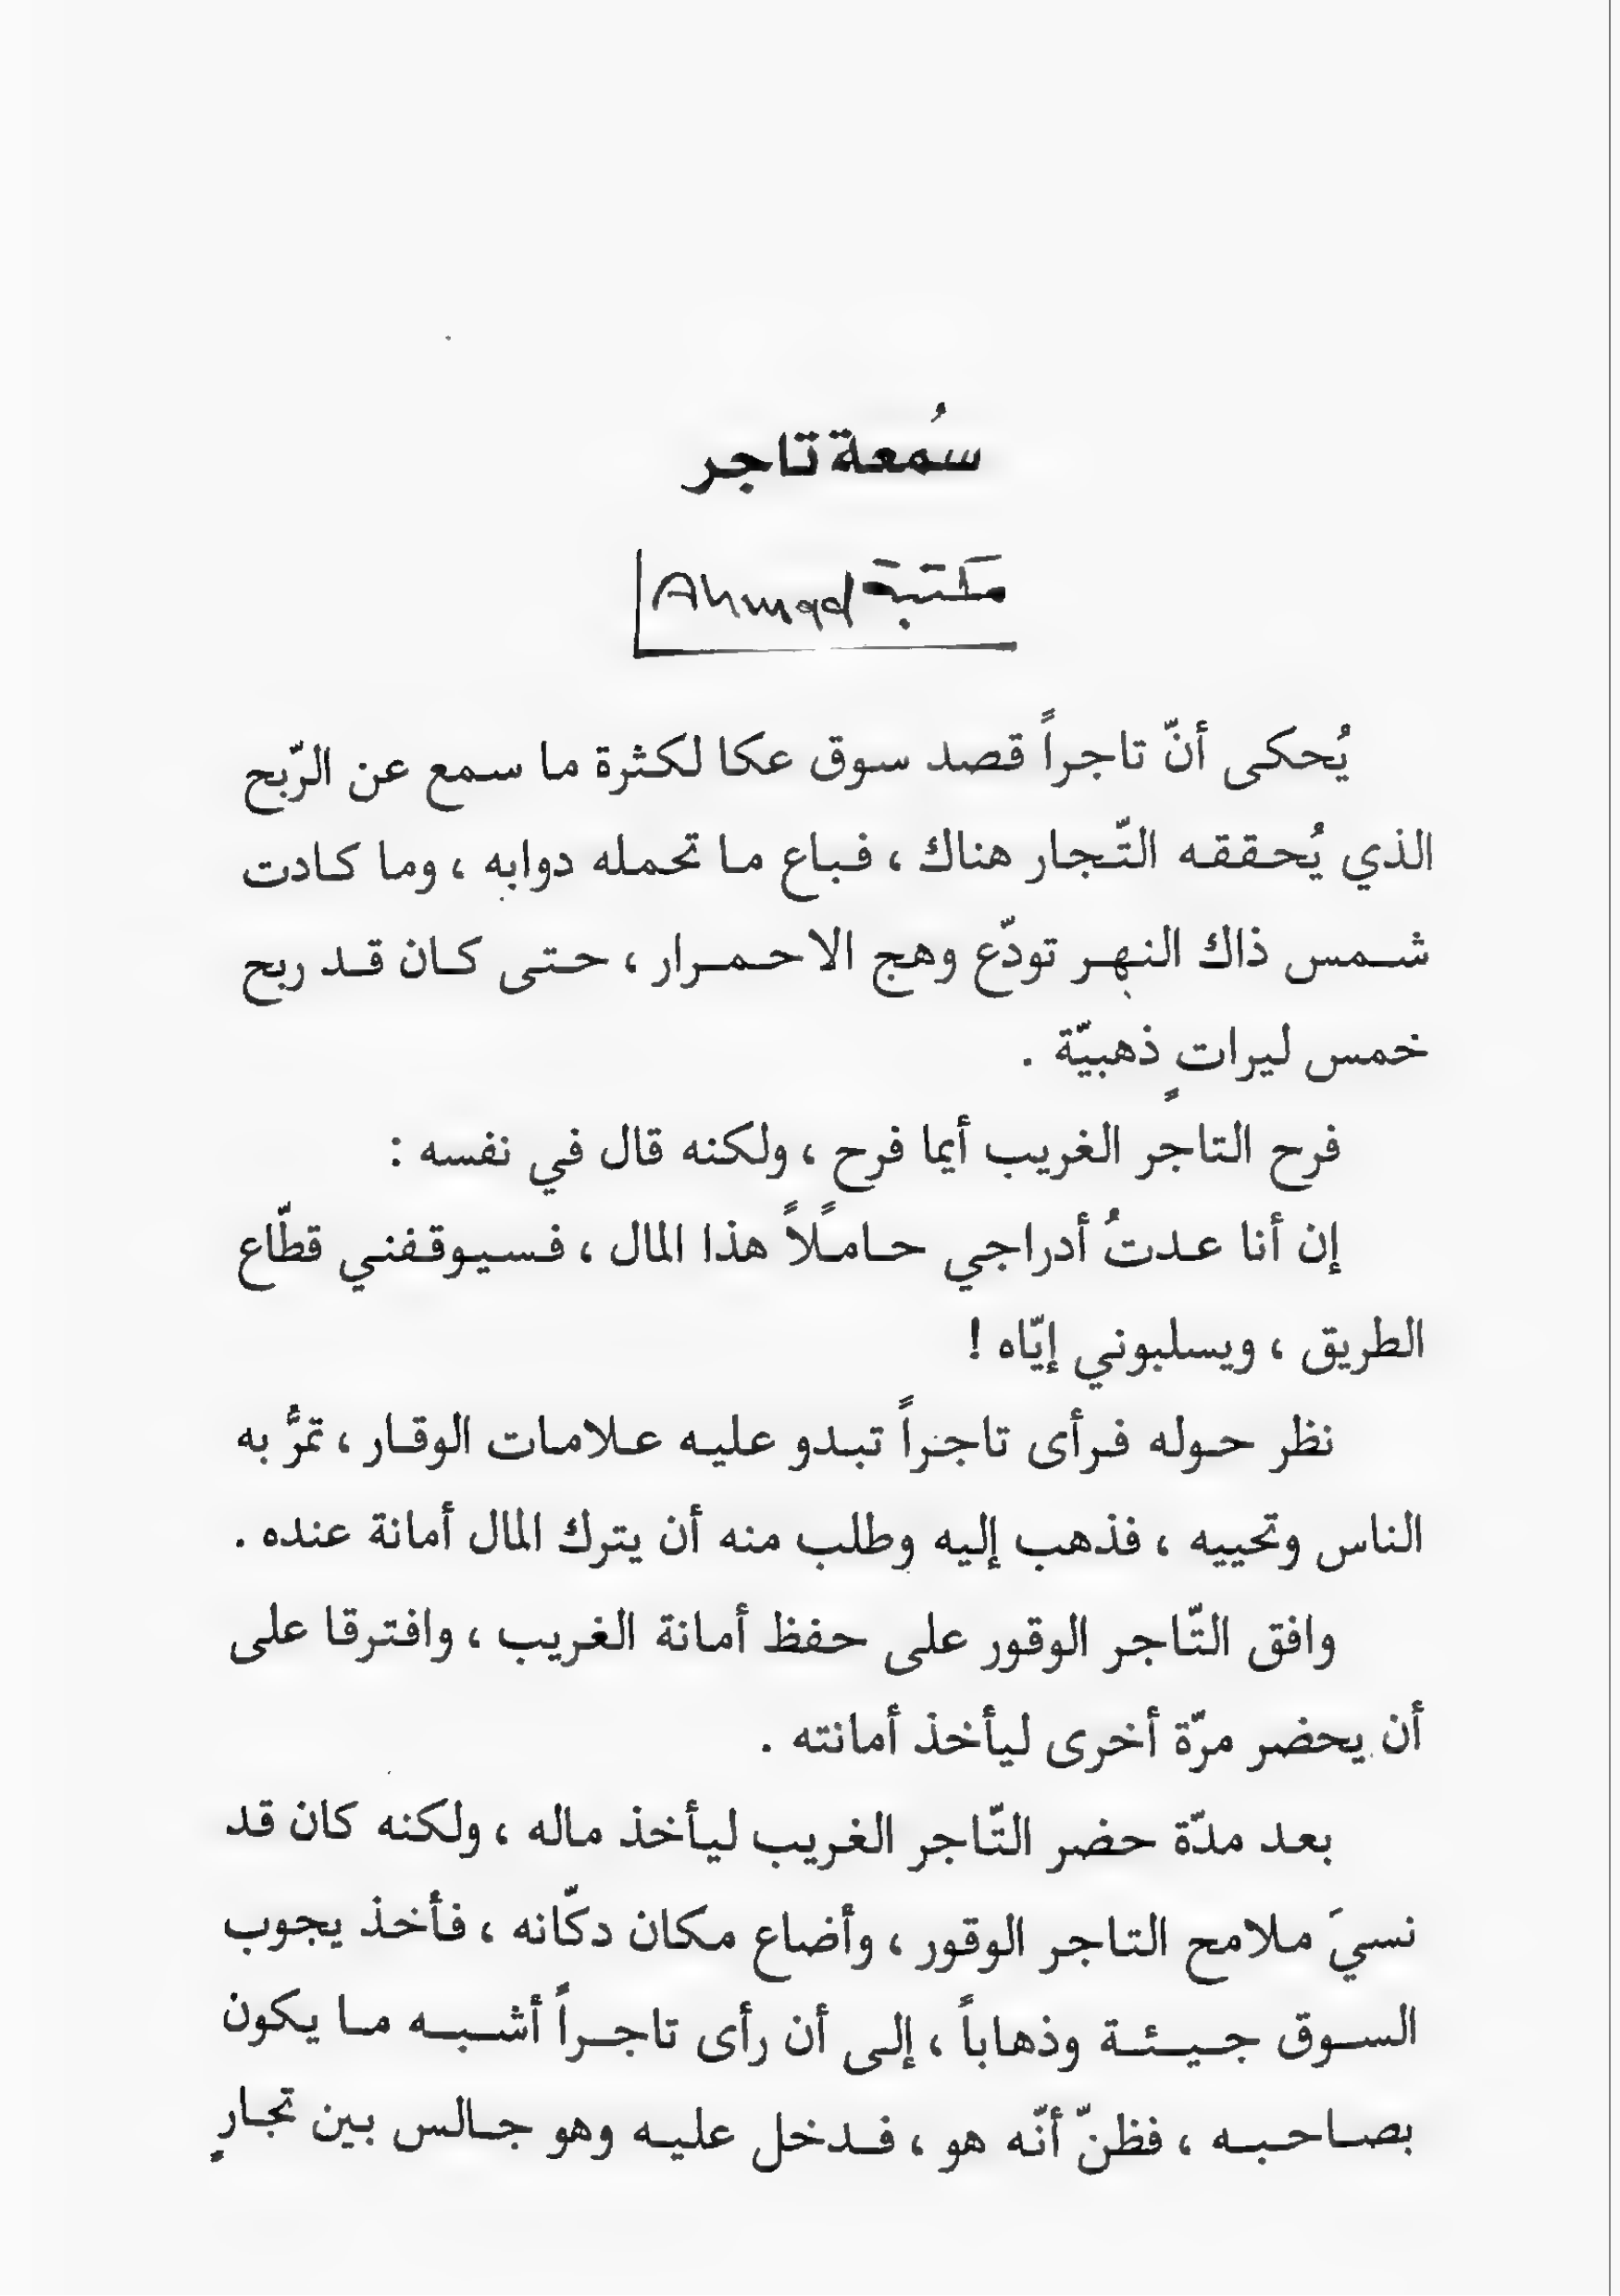 سُمعة تاجر
مكتبة Ahmad
يُحكى أنّ تاجراً قصد سوق عكا لكثرة ما سمع عن الرّبح
الذي يُحققه التّجار هناك ، فباع ما تحمله دوابه ، وما كادت
شمس ذاك النهر تودّع وهج الاحمرار ، حتى كان قد ربح
خمس ليراتٍ ذهبيّة .
فرح التاجر الغريب أيما فرح ، ولكنه قال في نفسه :
إن أنا عدتُ أدراجي حاملًاً هذا المال ، فسيوقفني قطّاع
الطريق ، ويسلبوني إيّاه !
نظر حوله فرأى تاجراً تبدو عليه علامات الوقار ، تمرُّ به
الناس وتحييه ، فذهب إليه وطلب منه أن يترك المال أمانة عنده .
وافق التّاجر الوقور على حفظ أمانة الغريب ، وافترقا على
أن يحضر مرّة أخرى ليأخذ أمانته .
بعد مدّة حضر التّاجر الغريب ليأخذ ماله ، ولكنه كان قد
نسيَ ملامح التاجر الوقور ، وأضاع مكان دكّانه ، فأخذ يجوب
السوق جيئة وذهاباً ، إلى أن رأى تاجراً أشبه ما يكون
بصاحبه ، فظنّ أنّه هو ، فدخل عليه وهو جالس بين تجارٍ